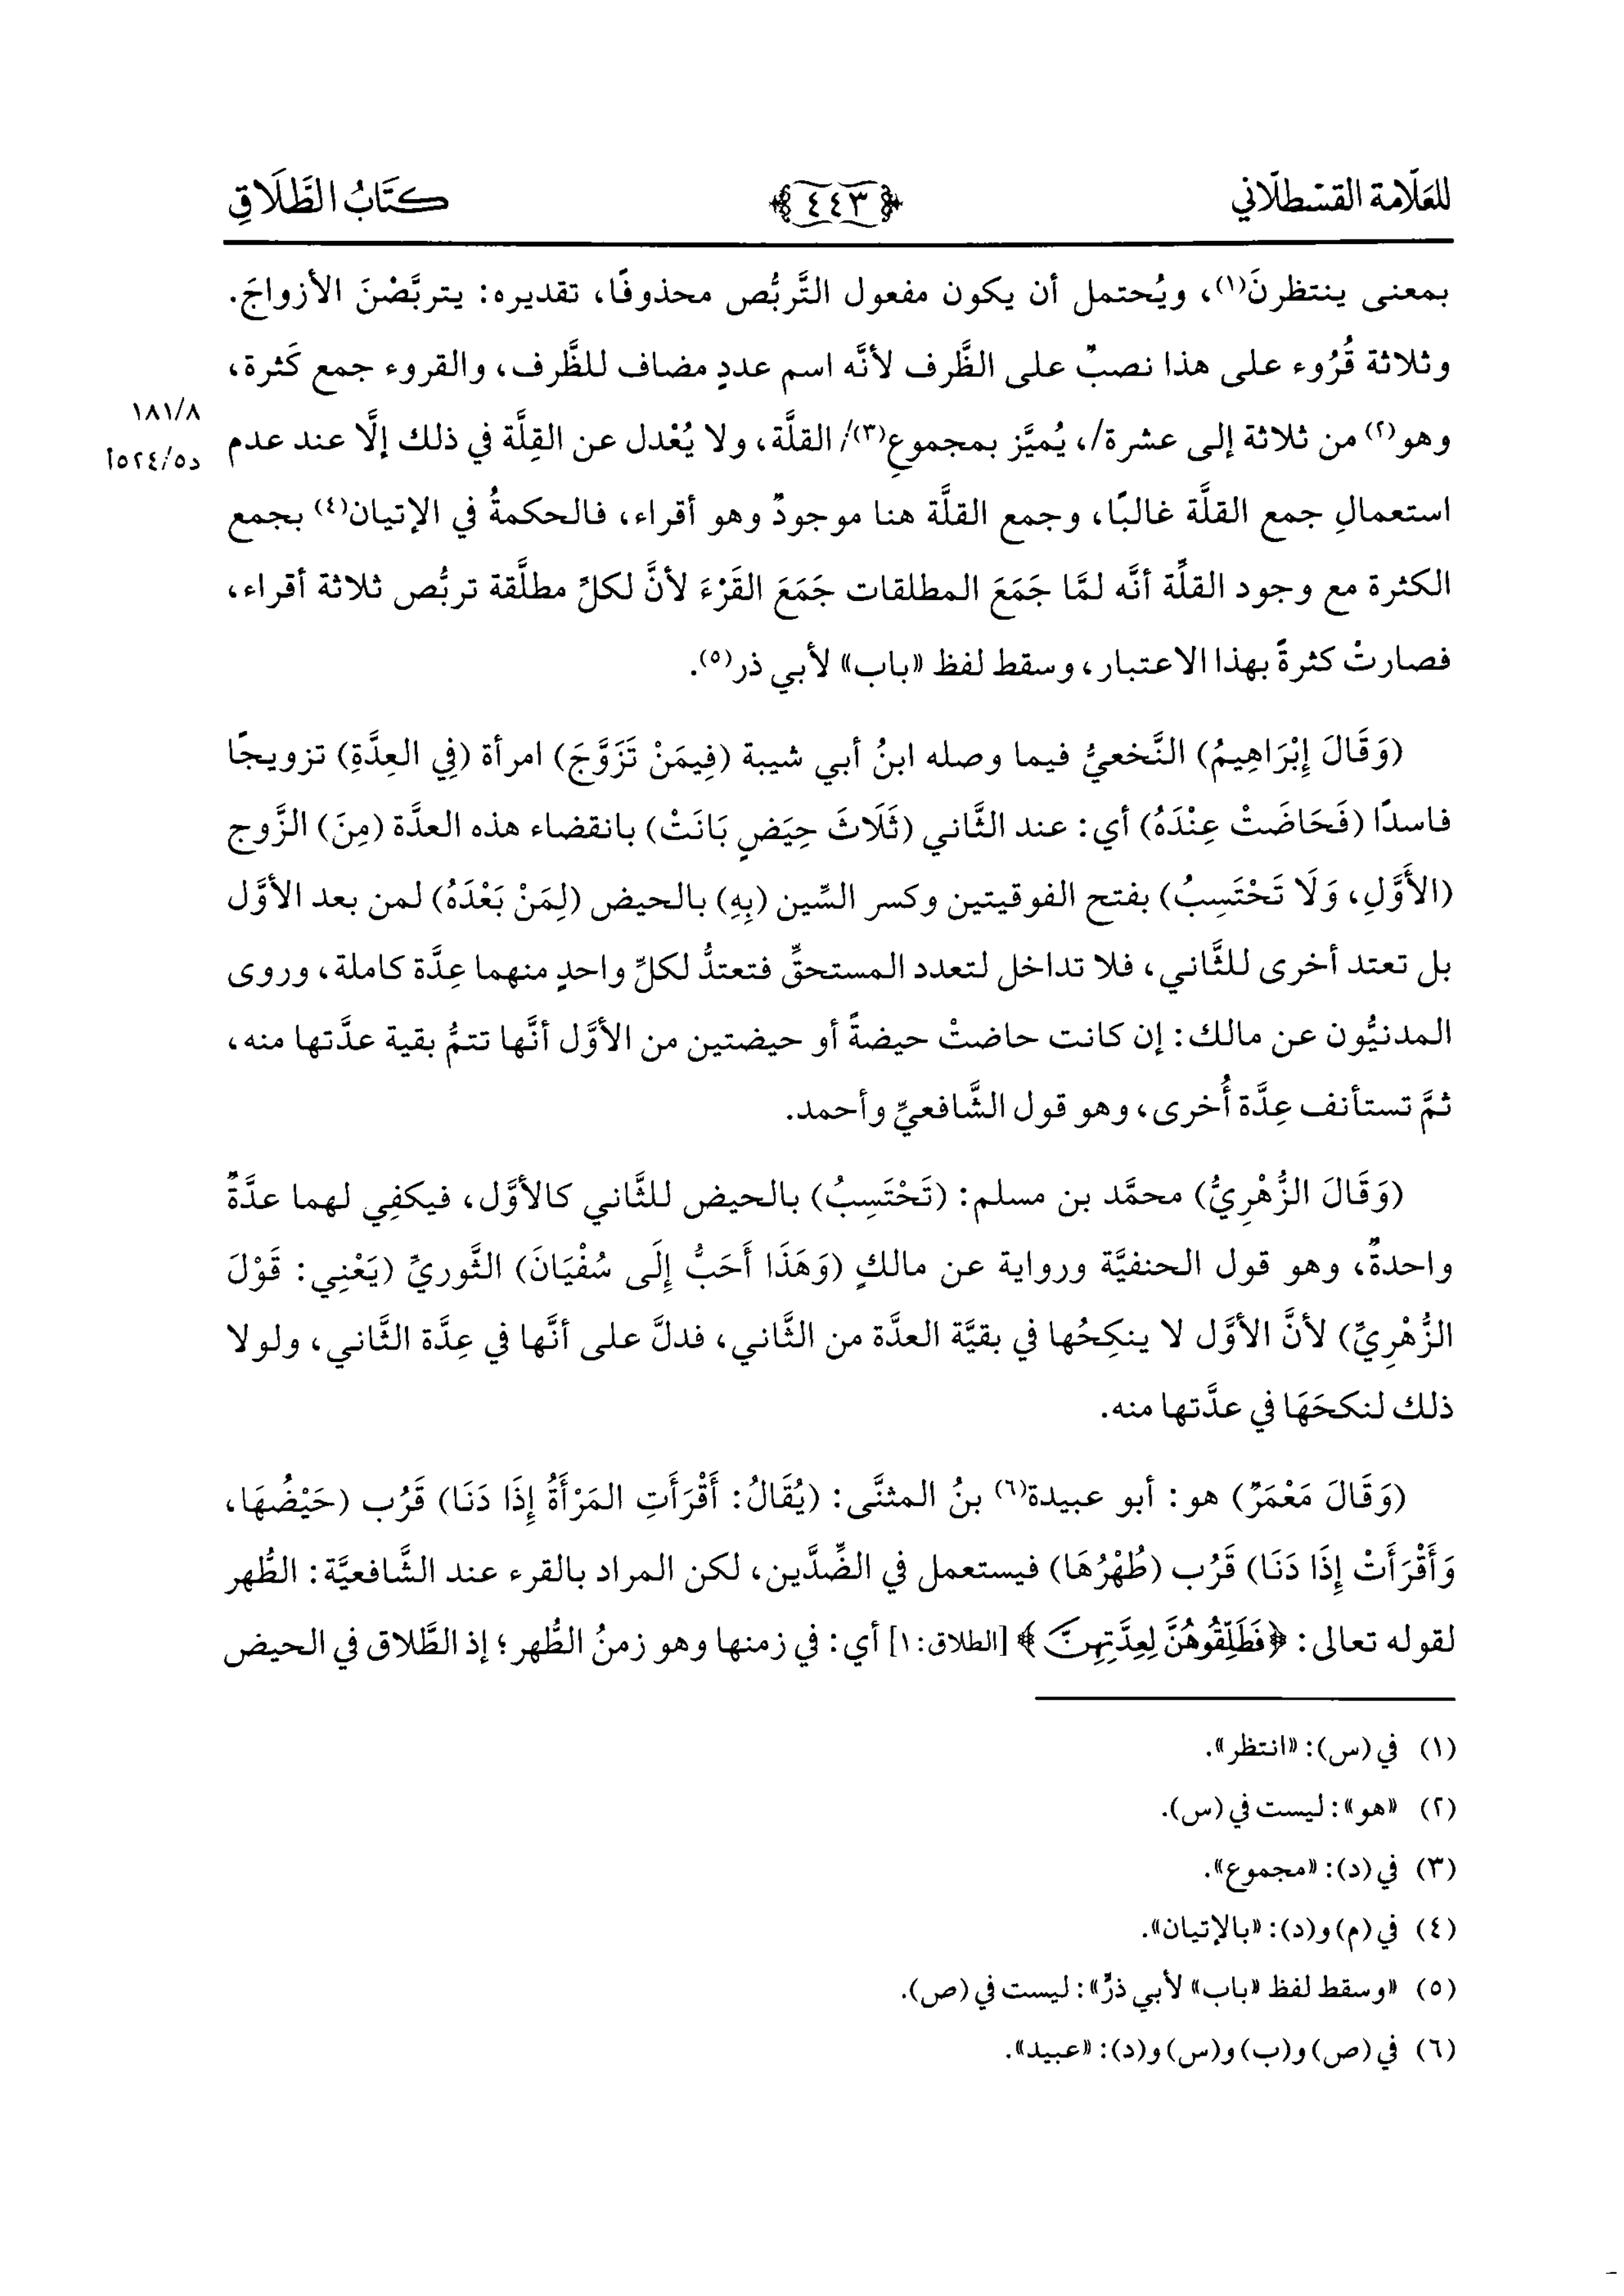 للعَلّامة القسْطلّاني ٤٤٣ كتَابُ الطَّلَاقِ
بمعنى ينتظرنَ(١)، ويُحتمل أن يكون مفعول التَّربُّص محذوفًا، تقديره: يتربَّصْنَ الأزواجَ.
وثلاثة قُرُوء على هذا نصبٌ على الظَّرف لأنَّه اسم عددٍ مضاف للظَّرف، والقروء جمع كَثرة،
١٨١/٨
وهو(٢) من ثلاثة إلى عشرة/، يُميَّز بمجموعِ(٣)/ القلَّة، ولا يُعْدل عن القِلَّة في ذلك إلَّا عند عدم
د٥٢٤/٥أ
استعمالِ جمع القلَّة غالبًا، وجمع القلَّة هنا موجودٌ وهو أقراء، فالحكمةُ في الإتيان(٤) بجمع
الكثرة مع وجود القلَّة أنَّه لمَّا جَمَعَ المطلقات جَمَعَ القَرْءَ لأنَّ لكلِّ مطلَّقة تربُّص ثلاثة أقراء،
فصارتْ كثرةً بهذا الاعتبار، وسقط لفظ «باب» لأبي ذر(٥).
(وَقَالَ إِبْرَاهِيمُ) النَّخعيُّ فيما وصله ابنُ أبي شيبة (فِيمَنْ تَزَوَّجَ) امرأة (فِي العِدَّةِ) تزويجًا
فاسدًا (فَحَاضَتْ عِنْدَهُ) أي: عند الثَّاني (ثَلَاثَ حِيَضٍ بَانَتْ) بانقضاء هذه العدَّة (مِنَ) الزَّوج
(الأَوَّلِ، وَلَا تَحْتَسِبُ) بفتح الفوقيتين وكسر السِّين (بِهِ) بالحيض (لِمَنْ بَعْدَهُ) لمن بعد الأوَّل
بل تعتد أخرى للثَّاني، فلا تداخل لتعدد المستحقِّ فتعتدُّ لكلِّ واحدٍ منهما عِدَّة كاملة، وروى
المدنيُّون عن مالك: إن كانت حاضتْ حيضةً أو حيضتين من الأوَّل أنَّها تتمُّ بقية عدَّتها منه،
ثمَّ تستأنف عِدَّة أُخرى، وهو قول الشَّافعيِّ وأحمد.
(وَقَالَ الزُّهْرِيُّ) محمَّد بن مسلم: (تَحْتَسِبُ) بالحيض للثَّاني كالأوَّل، فيكفِي لهما عدَّةٌ
واحدةٌ، وهو قول الحنفيَّة ورواية عن مالكٍ (وَهَذَا أَحَبُّ إِلَى سُفْيَانَ) الثَّوريِّ (يَعْنِي: قَوْلَ
الزُّهْرِيِّ) لأنَّ الأوَّل لا ينكِحُها في بقيَّة العدَّة من الثَّاني، فدلَّ على أنَّها في عِدَّة الثَّاني، ولولا
ذلك لنكحَهَا في عدَّتها منه.
(وَقَالَ مَعْمَرٌ) هو: أبو عبيدة(٦) بنُ المثنَّى: (يُقَالُ: أَقْرَأَتِ المَرْأَةُ إِذَا دَنَا) قَرُب (حَيْضُهَا،
وَأَقْرَأَتْ إِذَا دَنَا) قَرُب (طُهْرُهَا) فيستعمل في الضِّدَّين، لكن المراد بالقرء عند الشَّافعيَّة: الطُّهر
لقوله تعالى: ﴿فَطَلِّقُوهُنَّ لِعِدَّتِهِنَّ﴾ [الطلاق:١] أي: في زمنها وهو زمنُ الطُّهر؛ إذ الطَّلاق في الحيض
(١) في (س): «انتظر».
(٢) «هو»: ليست في (س).
(٣) في (د): «مجموع».
(٤) في (م) و(د): «بالإتيان».
(٥) «وسقط لفظ «باب» لأبي ذرٍّ»: ليست في (ص).
(٦) في (ص) و(ب) و(س) و(د): «عبيد».